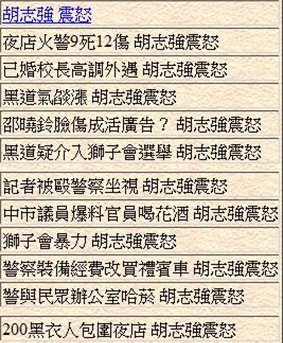 胡志強 震怒
夜店火警9死12傷 胡志強震怒
已婚校長高調外遇 胡志強震怒
黑道氣燄漲 胡志強震怒
邵曉鈴臉傷成活廣告？ 胡志強震怒
黑道疑介入獅子會選舉 胡志強震怒
記者被毆警察坐視 胡志強震怒
中市議員爆料官員喝花酒 胡志強震怒
獅子會暴力 胡志強震怒
警察裝備經費改買禮賓車 胡志強震怒
警與民眾辦公室哈菸 胡志強震怒
200黑衣人包圍夜店 胡志強震怒